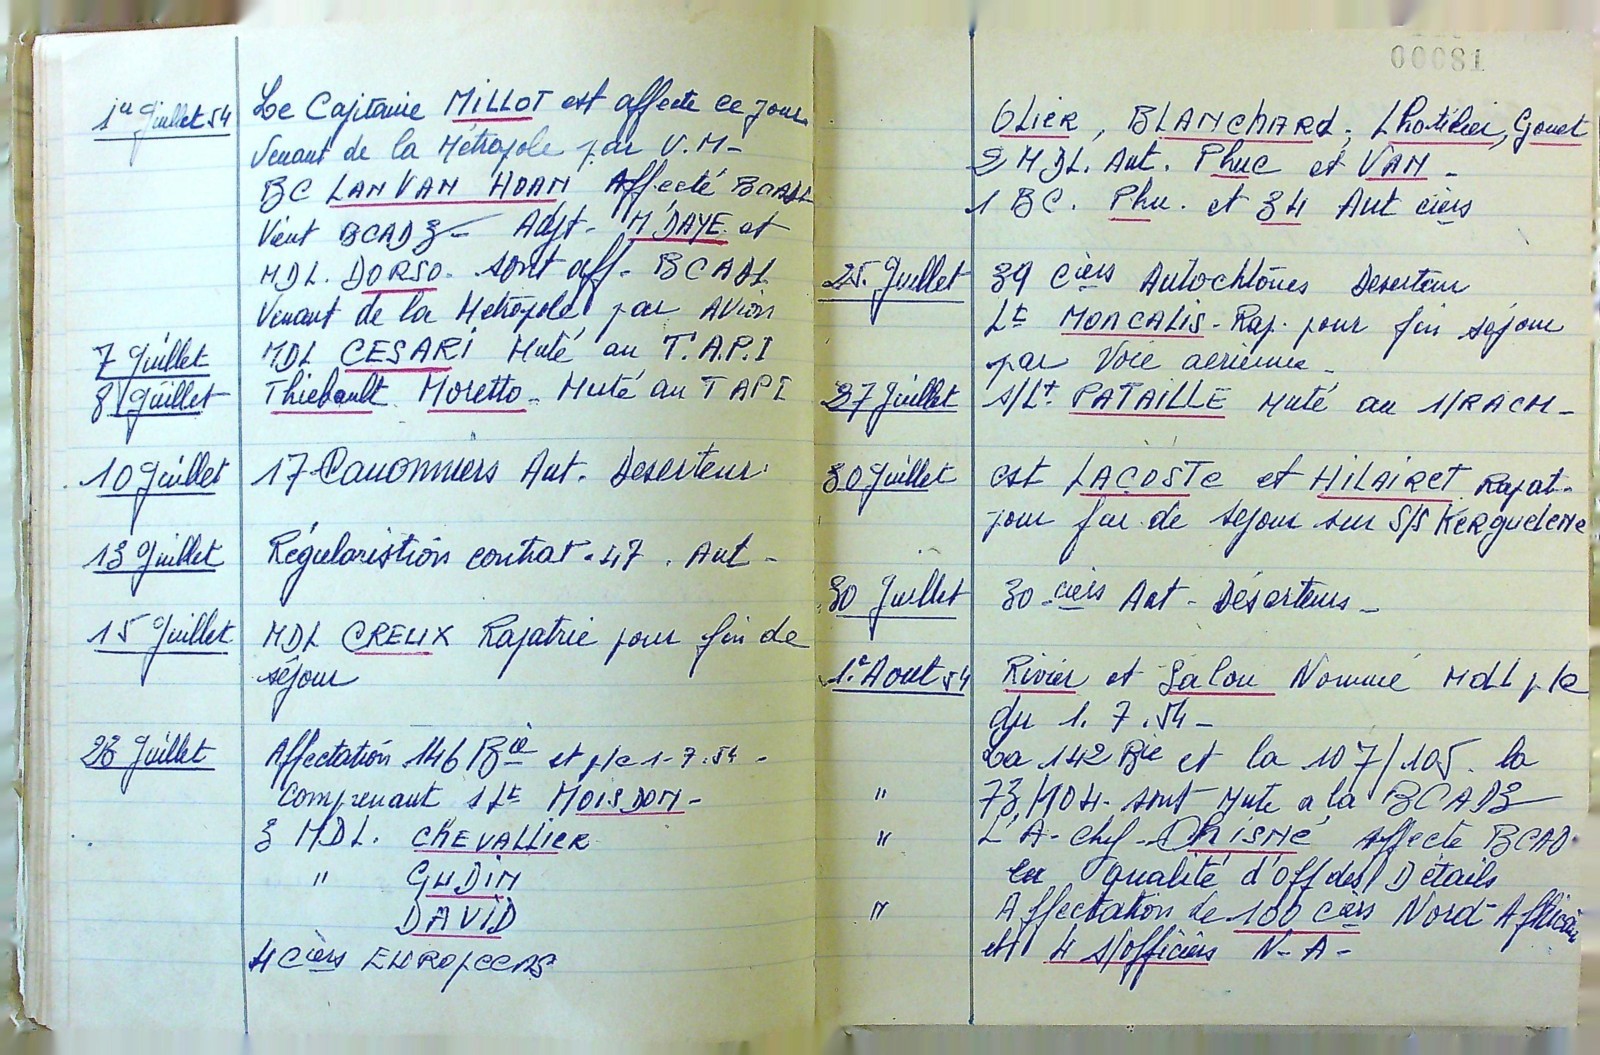 1er Juillet 54 Le Capitaine MILLOT est affecte ce jour
Venant de la Métropole par V.M-
BC LAN VAN HOAN Affecté BCADL
Vient BCAD3- Adjt- M'DAYE et
MDL. DORSO. sont aff- BCADL
Venant de la Metropole par AVion
7 Juillet MDL CESARI Muté au T.A.P.I
8 Juillet Thiebault Moretto - Muté au TAPI
10 Juillet 17 Canonniers Aut. Deserteur.
13 Juillet Régularistion contrat. 47. Aut -
15 Juillet MDL CREUX Rapatrie pour fin de
séjour
23 Juillet Affectation 146 Bie et p/c 1-7-54 -
Comprenant 1 Lt MOISDON-
3 MDL. CHEVALLIER
" GUDIN
DAVID
4 Ciers EUROPEENS
00081
OLIER, BLANCHARd, Lhotelier, Gouet
2 MDL. Aut. Phuc et VAN -
1 BC. Phu. et 34 Aut ciers
25. Juillet 39 Ciers Autochtônes Deserteur
Lt MONCALIS - Rap. pour fin séjour
par Voie aerienne -
27 Juillet S/Lt PATAILLE Muté au 1/RACM-
30 Juillet est LACOSTE et HILAIRET Rapat-
pour fin de séjour sur S/S KERguelene
30 Juillet 30 ciers Aut - Déserteurs -
1e. Aout 54 Rivier et Salou Nommé MdL p/c
du 1. 7. 54 -
La 142 Bie et la 107/105. la
" 73/104. sont Muté a la BCAD3
" L'A-chef- Chismé Affecte BCAD.
en qualité d'off des Détails
" Affectation de 100 ciers Nord-Africain
et 4 s/officiers N-A-